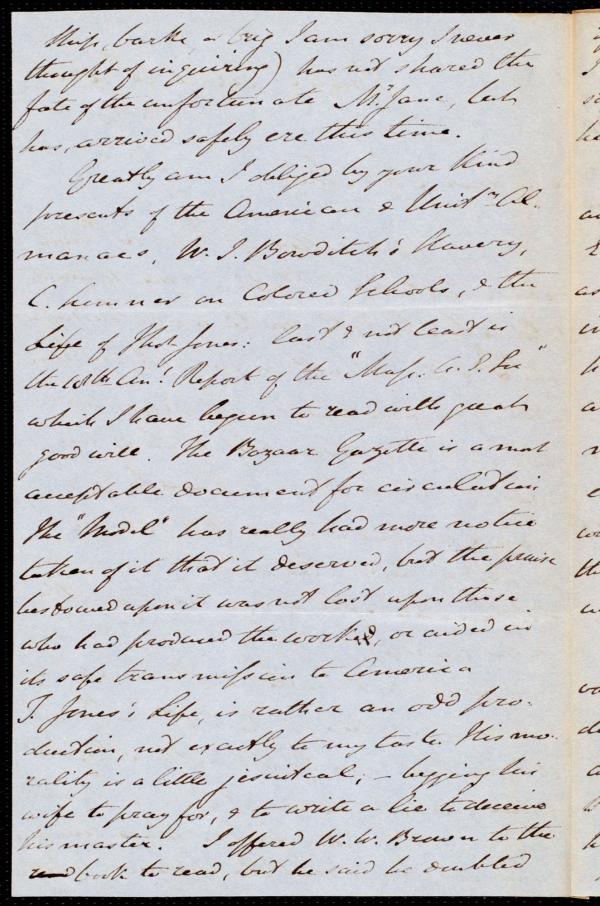 ship, barke, or brig I am sorry I never
thought of inquiring) has not shared the
fate of the unfortunate Mr. Jane, but
has, arrived safely ere this time.
Greatly am I obliged by your kind
presents of the American & Unitn. Al-
manacs, W. I. Bowditch's Slavery,
C. Sumner on Colored Schools, & the
Life of Thos Jones: last & not least is
the 18th An! Report of the "Mass: A. S. So"
which I have begun to read with great
good will. The Bazaar Gazette is a most
acceptable document for circulation
The "Model" has really had more notice
taken of it that it deserved, but the praise
bestowed upon it was not lost upon those
who had produced the work, or aided in
its safe transmission to America
T. Jones's Life, is rather an odd pro-
duction, not exactly to my taste. His mo-
rality is a little jesuitcal; - begging his
wife to pray for, & to write a lie to deceive
his master. I offered W. W. Brown to the
book to read, but he said he doubted